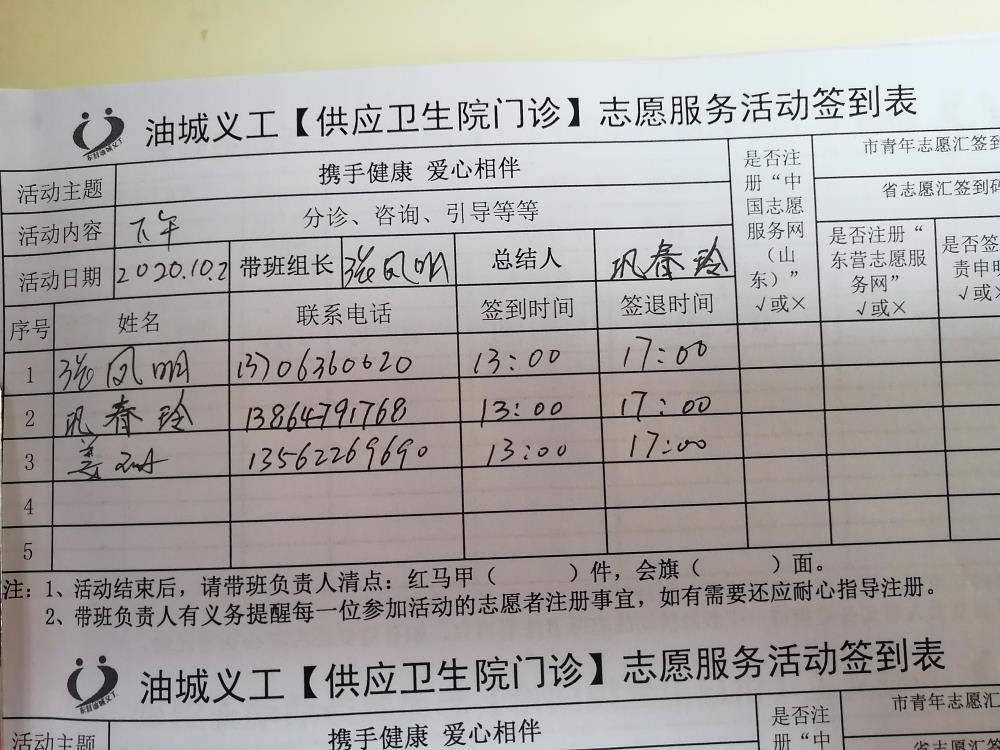 油城义工【供应卫生院门诊】志愿服务活动签到表
活动主题 携手健康 爱心相伴 是否注册“中国志愿服务网（山东）” √或× 市青年志愿汇签到
活动内容 下午 分诊、咨询、引导等等 省志愿汇签到码
活动日期 2020.10.2 带班组长 张凤明 总结人 巩春玲 是否注册“东营志愿服务网” √或× 是否签 责申明 √或×
序号 姓名 联系电话 签到时间 签退时间
1 张凤明 13706360620 13:00 17:00
2 巩春玲 13864791768 13:00 17:00
3 姜 13562269690 13:00 17:00
4
5
注：1、活动结束后，请带班负责人清点：红马甲（ ）件，会旗（ ）面。
2、带班负责人有义务提醒每一位参加活动的志愿者注册事宜，如有需要还应耐心指导注册。
油城义工【供应卫生院门诊】志愿服务活动签到表
活动主题 携手健康 爱心相伴 是否注册“中 市青年志愿汇
省志愿汇签